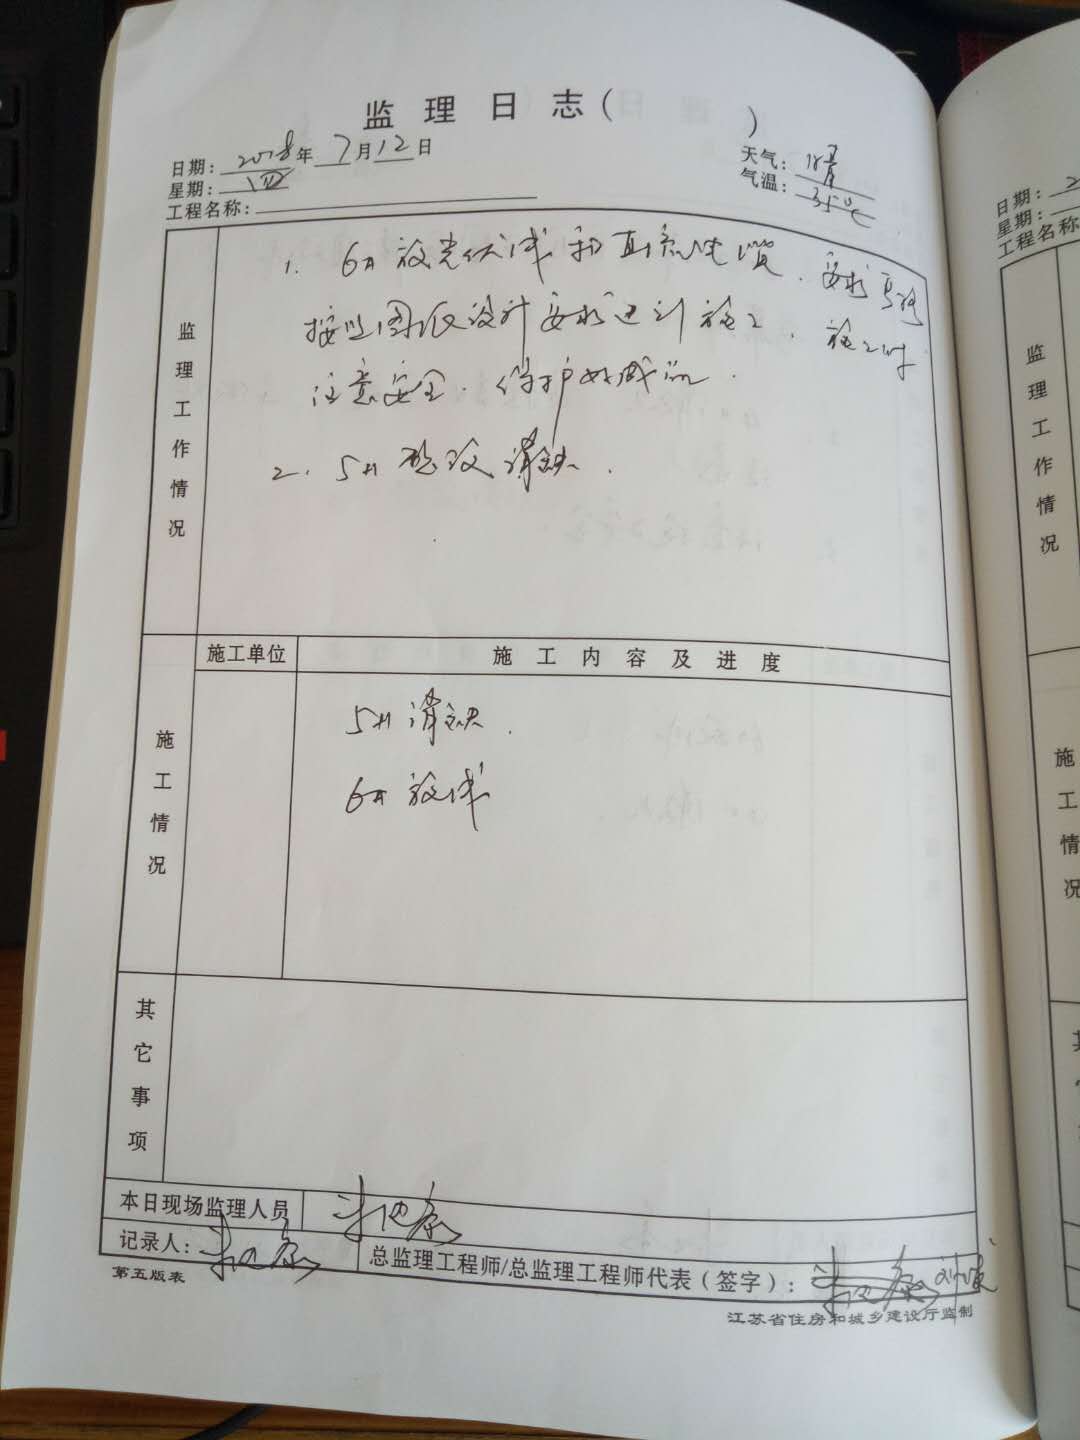 监理日志( )
日期: 2018年7月12日
天气: 晴
星期: 四
气温: 35℃
工程名称:
监理工作情况
1. 6# 放光伏线和直流电缆. 要求
按照图纸设计要求进行施工. 施工时
注意安全. 保护好成品.
2. 5# 整改消缺.
施工单位
施工内容及进度
施工情况
5# 消缺.
6# 放线
其它事项
本日现场监理人员
记录人:
总监理工程师/总监理工程师代表(签字):
第五版表
江苏省住房和城乡建设厅监制
日期: 2
星期:
工程名称
监理工作情况
施工情况